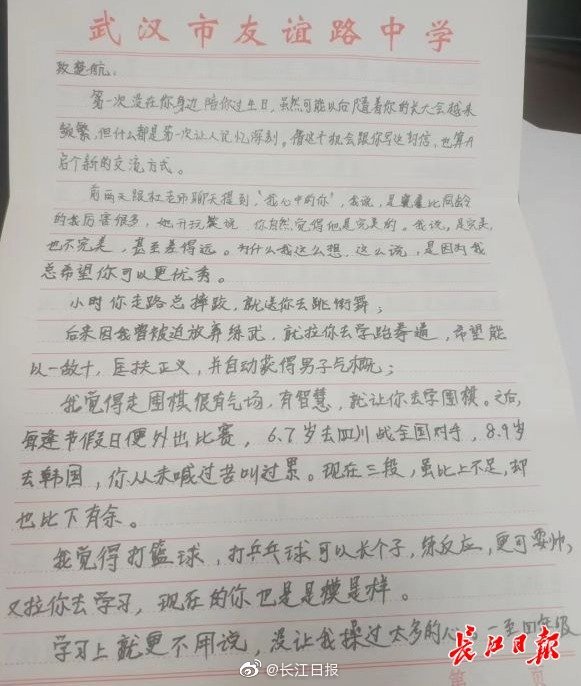 武汉市友谊路中学
致楚航:
第一次没在你身边陪你过生日,虽然可能以后随着你的长大会越来
频繁,但什么都是第一次让人记忆深刻。借这个机会跟你写这封信,也算开
启个新的交流方式。
前两天跟杜老师聊天提到,“我心中的你”,我说,是比同龄
的我厉害很多,她开玩笑说 你自然觉得他是完美的。我说,是完美,
也不完美,甚至差得远。为什么我这么想,这么说,是因为我
总希望你可以更优秀。
小时你走路总摔跤,就送你去跳街舞;
后来因我曾被迫放弃练武,就拉你去学跆拳道,希望能
以一敌十,匡扶正义,并自动获得男子气概;
我觉得走围棋很有气场,有智慧,就让你去学围棋。之后,
每逢节假日便外出比赛,6.7岁去四川战全国对手,8.9岁
去韩国,你从未喊过苦叫过累。现在三段,虽比上不足,却
也比下有余。
我觉得打篮球,打乒乓球可以长个子,练反应,更可耍帅,
又拉你去学习,现在的你也是是模是样。
学习上就更不用说,没让我操过太多的心,一至四年级
长江日报
@长江日报
第 页